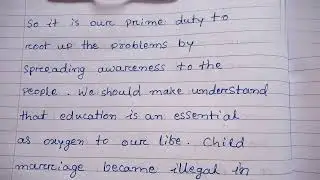 So it is our prime duty to
root up the problems by
spreading awareness to the
people. We should make understand
that education is an essential
as oxygen to our life. Child
marriage became illegal in